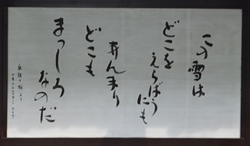 この雪は
どこを
えらばうにも
あんまり
どこも
まっしろ
なのだ